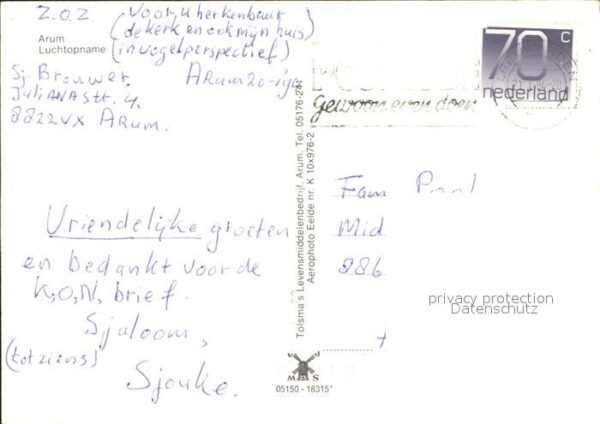 Z.O.Z. voor u herkenbaar
(de kerk en ook mijn huis)
(in vogelperspectief)
Arum
Luchtopname
Sj. Brouwer,
Julianastr. 4.
8822 VX Arum.
Arum 20-
Vriendelijke groeten
en bedankt voor de
K.O.N. brief.
Sjaloom,
(tot ziens)
Sjouke.
70 c
nederland
Gewoon even doen.
Tolsma's Levensmiddelenbedrijf, Arum. Tel. 05176-241
Aerophoto Eelde nr. K 10x976-2
Fam
Mid
886
privacy protection
Datenschutz
v d
M S
05150 - 18315*